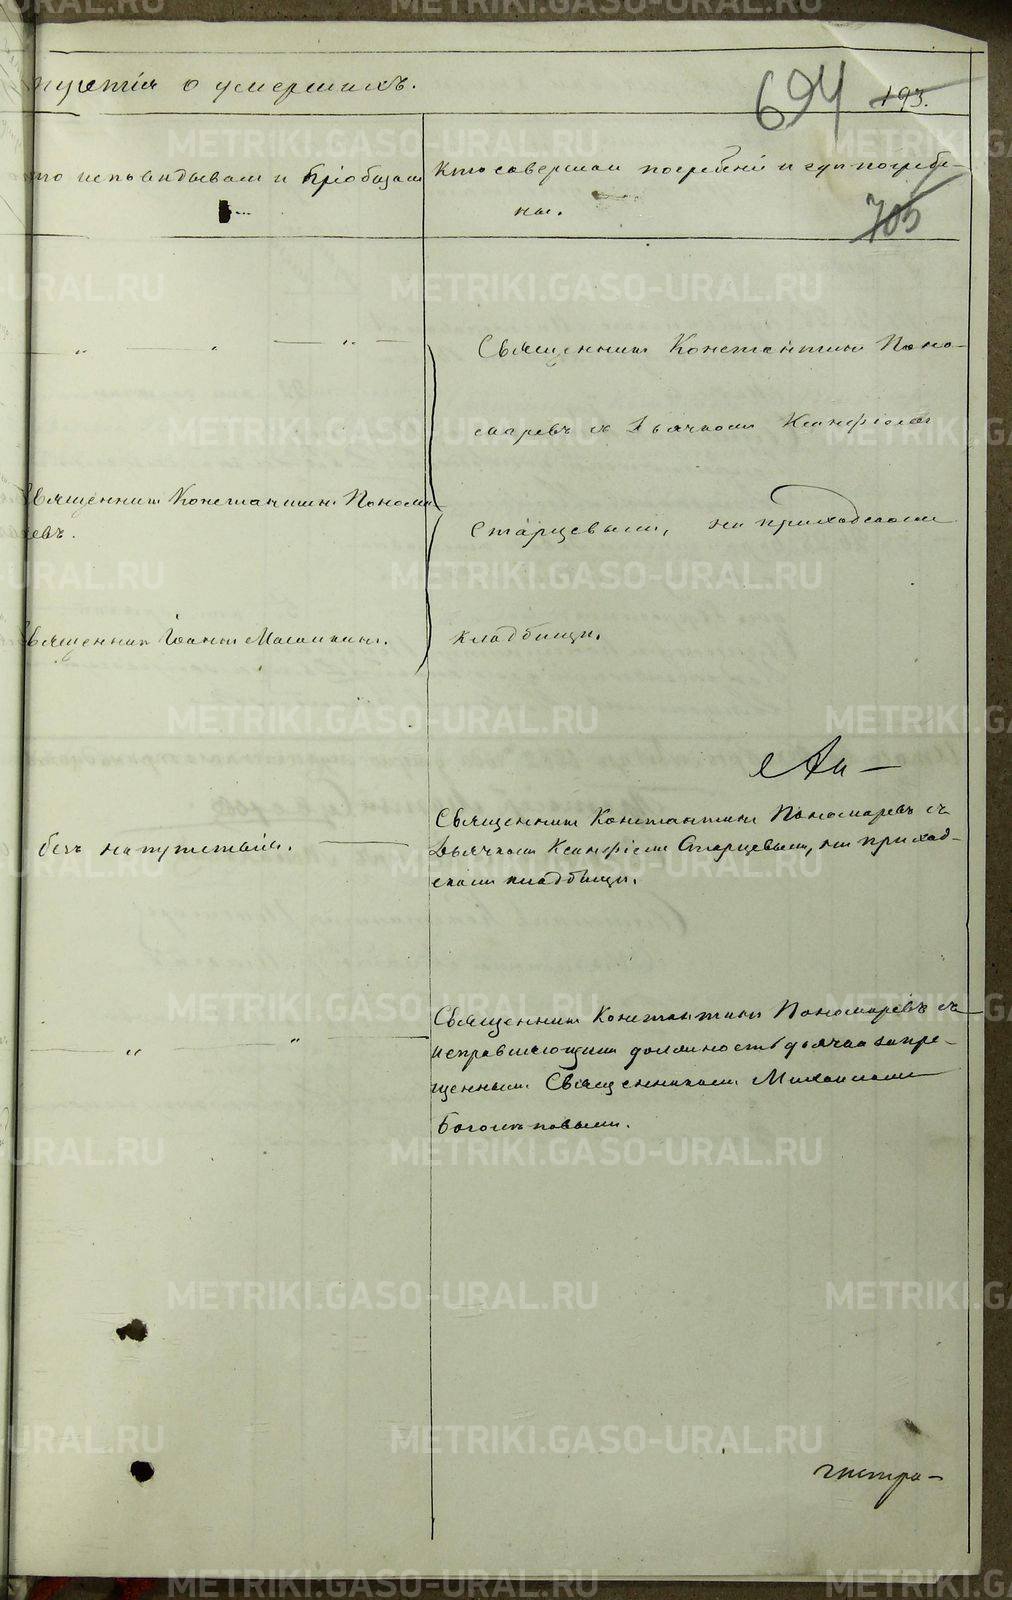 о умершихъ.
694
193.
исповѣдывалъ и Пріобщалъ
Кто совершалъ погребеніе и гдѣ погребе-
ны.
705
Священникъ Константинъ Поно-
маревъ съ Дьячкомъ Ксанфіемъ
Старцевымъ, на приходскомъ
кладбищѣ.
Священникъ Константинъ Понома
ревъ.
Священникъ Іоаннъ
безъ напутствія.
Священникъ Константинъ Пономаревъ съ
Дьячкомъ Ксанфіемъ Старцевымъ, на приход-
скомъ кладбищѣ.
Священникъ Константинъ Пономаревъ съ
исправляющимъ должность дьячка запре-
щеннымъ Священникомъ Михаиломъ
Боголѣповымъ.
METRIKI.GASO-URAL.RU